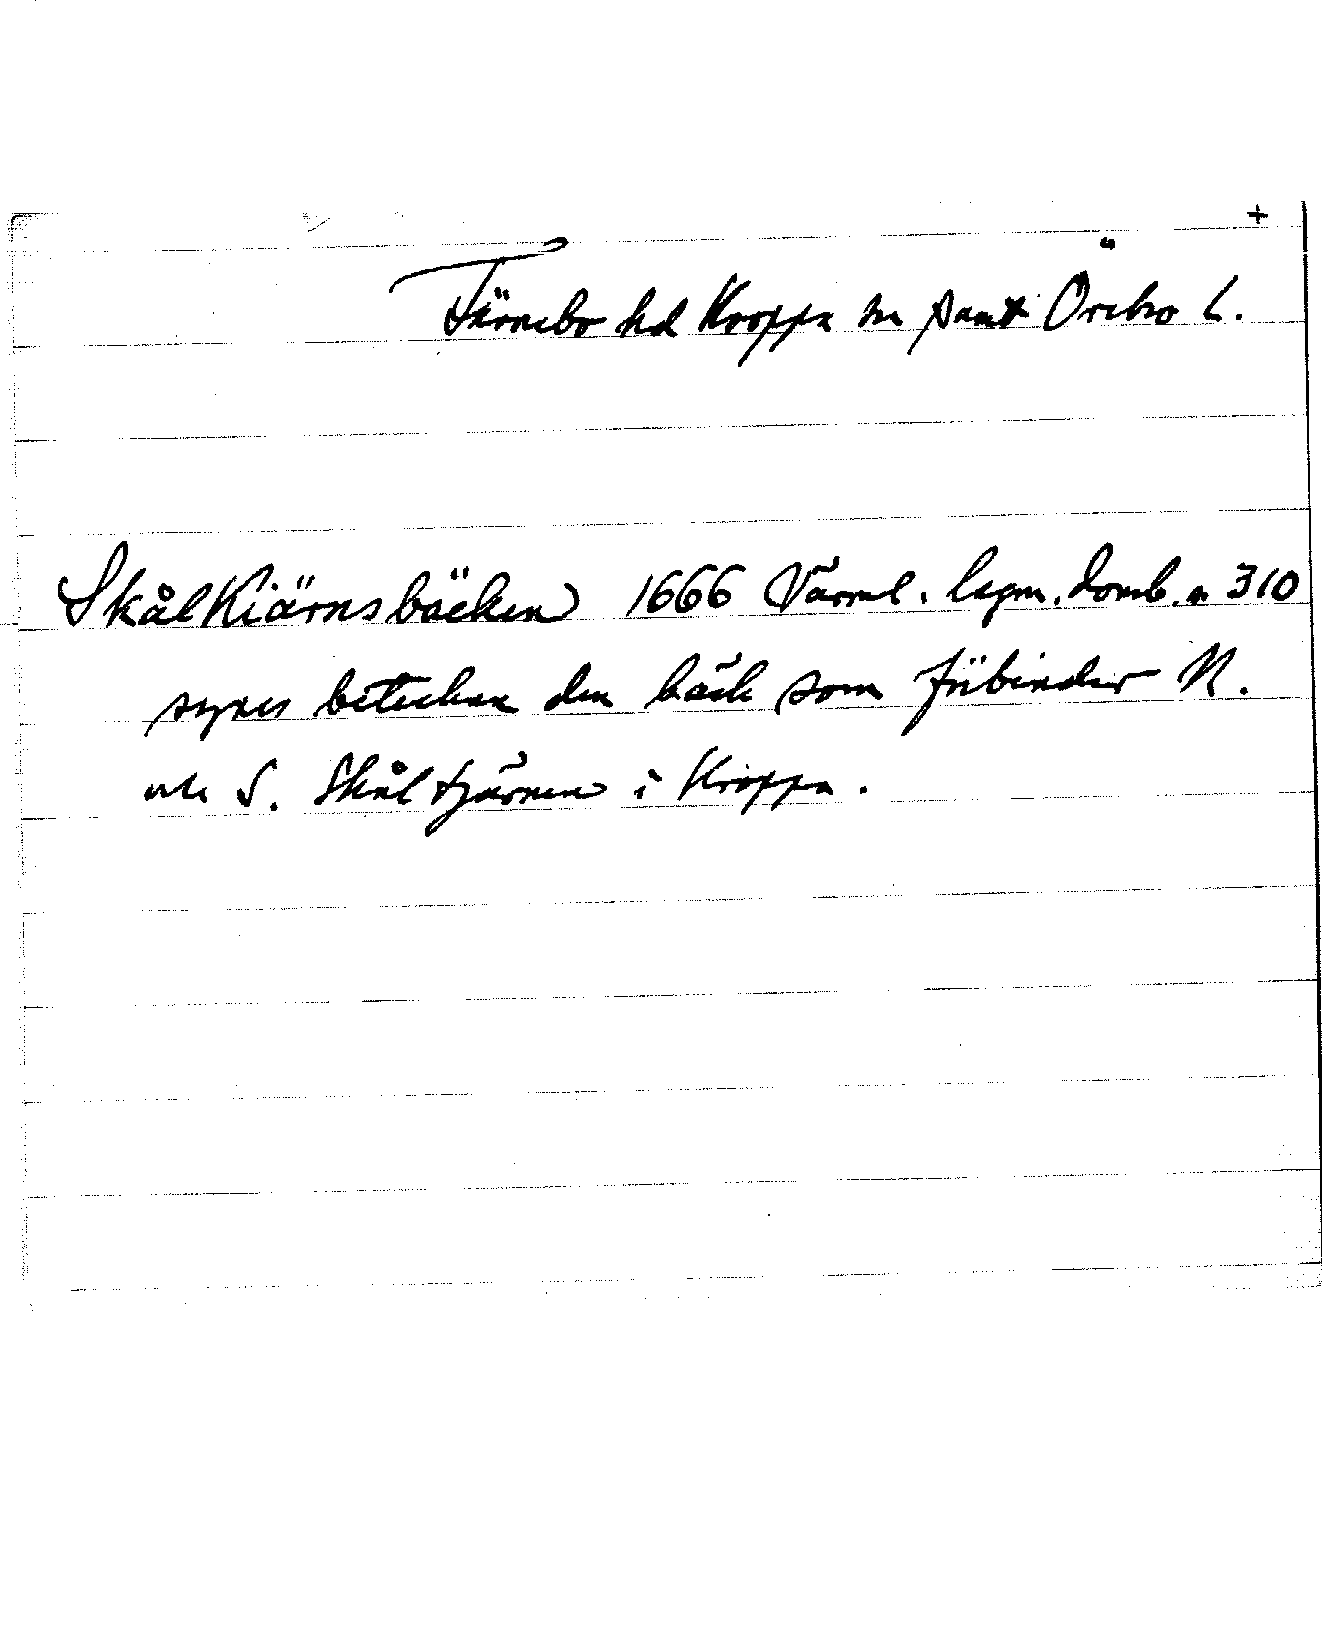 +
Färnebo hd Kroppa sn samt Örebro l.
SkålKiärnsbäcken 1666 Värml. lagm. domb. n 310
synes beteckna den bäck som förbinder N.
och S. Skåltjärnen i Kroppa.